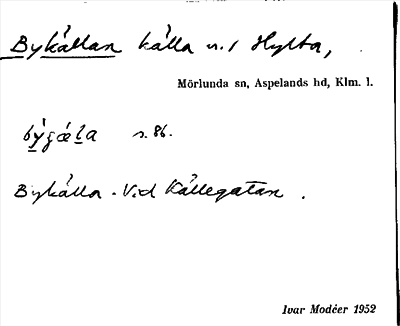 Bykällan källa n. / Hylta,
Mörlunda sn, Aspelands hd, Klm. l.
s. 86.
Bykälla. Vid Källegatan.
Ivar Modéer 1952